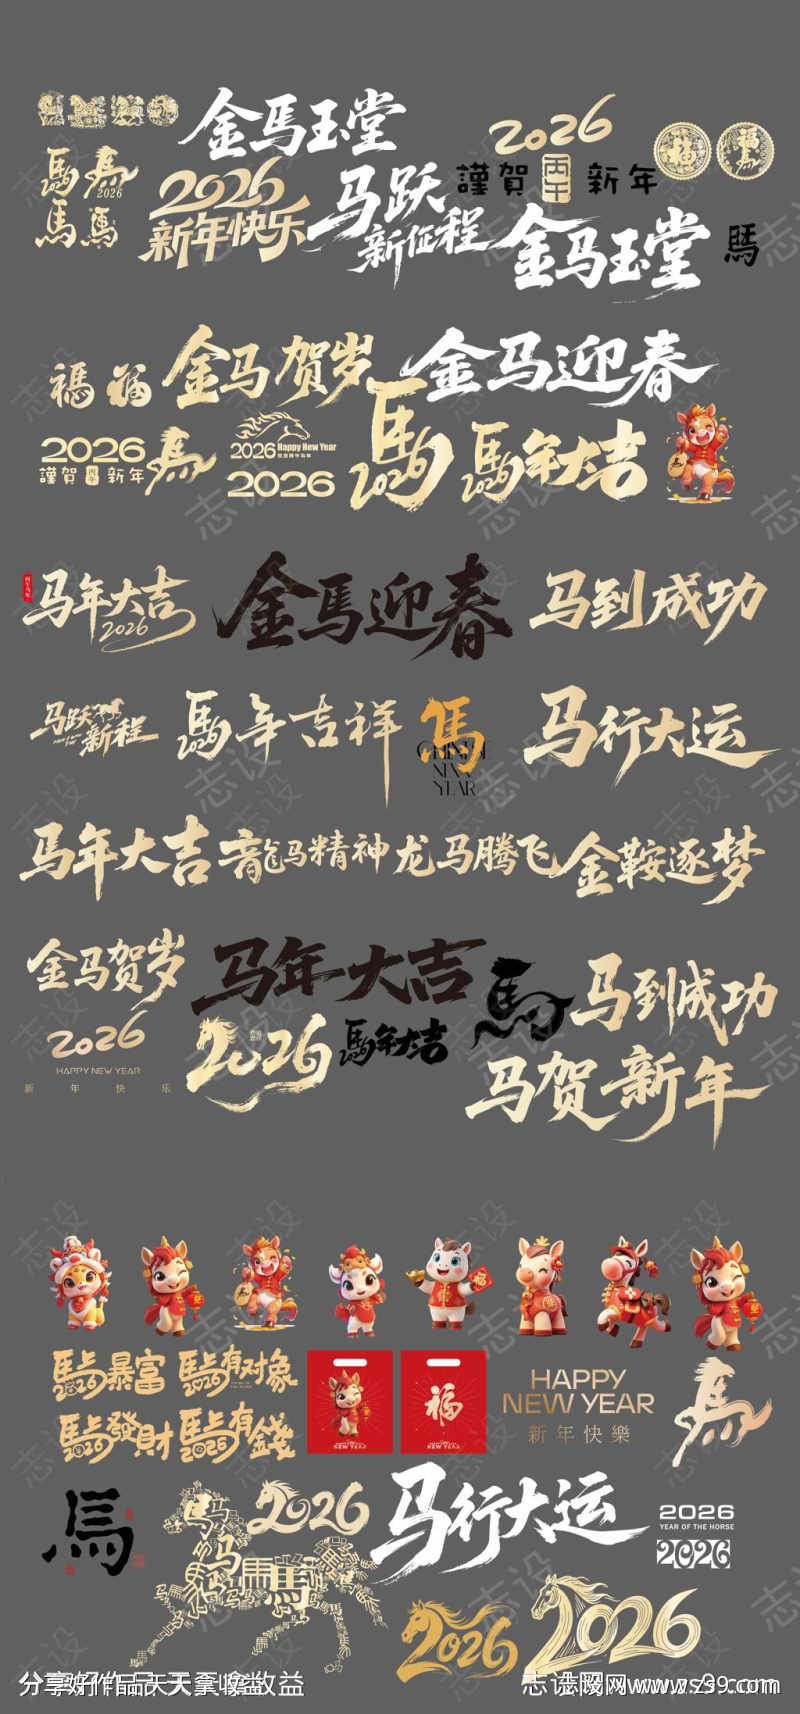 金馬玉堂
2026
謹賀 丙午 新年
福
馬 馬
2026
馬 馬
2026
新年快乐
马跃
新征程
金马玉堂
馬
福 福
金马贺岁
金马迎春
2026
謹賀 丙午 新年
馬
2026 Happy New Year
2026
馬
2026
馬年大吉
马年大吉
2026
金馬迎春
马到成功
马跃
新程
馬年吉祥
2026
馬
CHINESE
NEW
YEAR
马行大运
马年大吉
龍马精神
龙马腾飞
金鞍逐梦
金马贺岁
2026
HAPPY NEW YEAR
新年快乐
马年大吉
2026
馬年大吉
馬
马到成功
马贺新年
福
馬上暴富
2026
馬上有对象
2026
馬上發財
2026
馬上有錢
2026
NEW YEAR
福
NEW YEAR
HAPPY
NEW YEAR
新年快樂
馬
馬
2026
马行大运
2026
YEAR OF THE HORSE
2026
2026
2026
志设